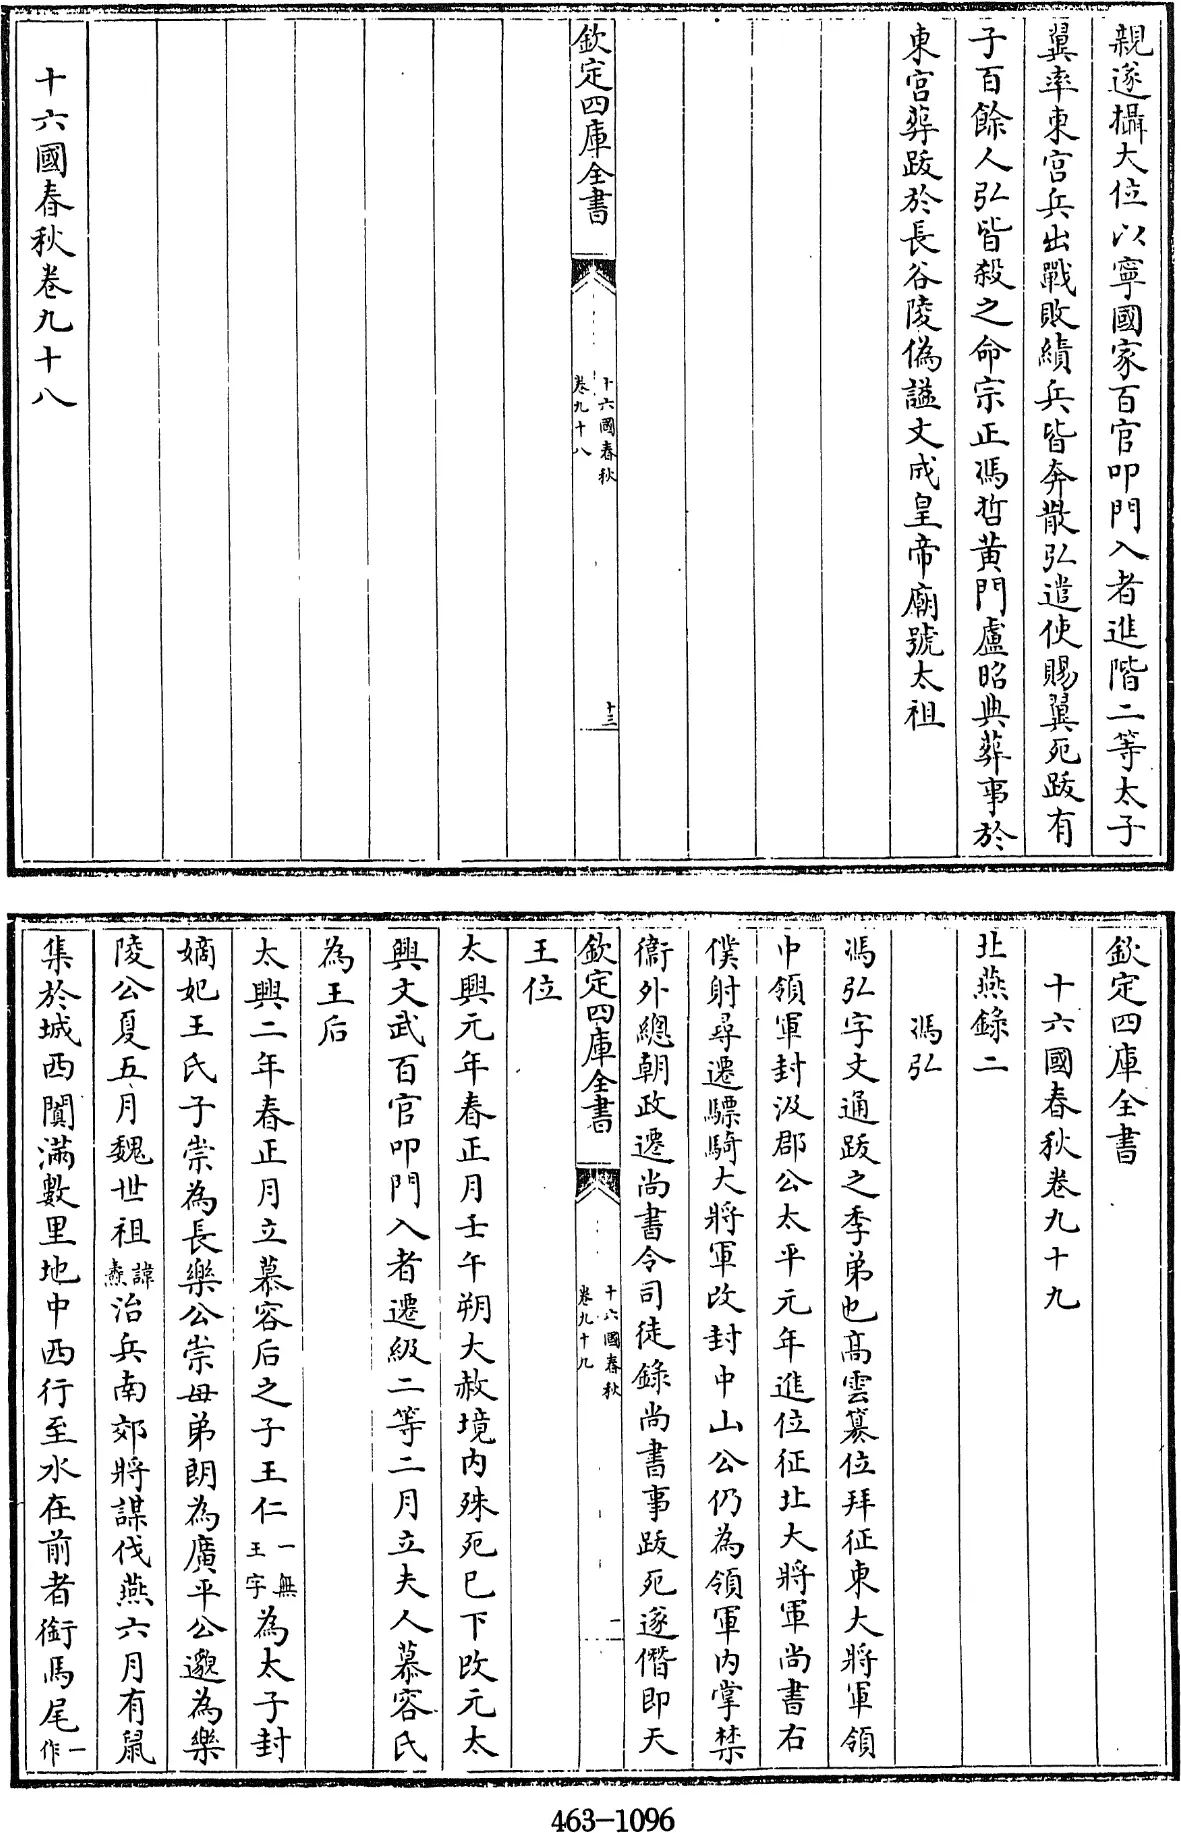 親遂攝大位以寧國家百官叩門入者進階二等太子
翼率東宮兵出戰敗績兵皆奔散弘遣使賜翼死跋有
子百餘人弘皆殺之命宗正馮哲黄門盧昭典葬事於
東宮葬跋於長谷陵偽諡文成皇帝廟號太祖
欽定四庫全書
十六國春秋
卷九十八
十三
十六國春秋卷九十八
欽定四庫全書
十六國春秋卷九十九
北燕錄二
馮弘
馮弘字文通跋之季弟也髙雲簒位拜征東大將軍領
中領軍封汲郡公太平元年進位征北大將軍尚書右
僕射尋遷驃騎大將軍改封中山公仍為領軍内掌禁
衞外總朝政遷尚書令司徒錄尚書事跋死遂僭即天
欽定四庫全書
十六國春秋
卷九十九
一
王位
太興元年春正月壬午朔大赦境内殊死已下改元太
興文武百官叩門入者遷級二等二月立夫人慕容氏
為王后
太興二年春正月立慕容后之子王仁一無王字為太子封
嫡妃王氏子崇為長樂公崇母弟朗為廣平公邈為樂
陵公夏五月魏世祖諱燾治兵南郊將謀伐燕六月有鼠
集於城西闐滿數里地中西行至水在前者銜馬尾一作
463-1096